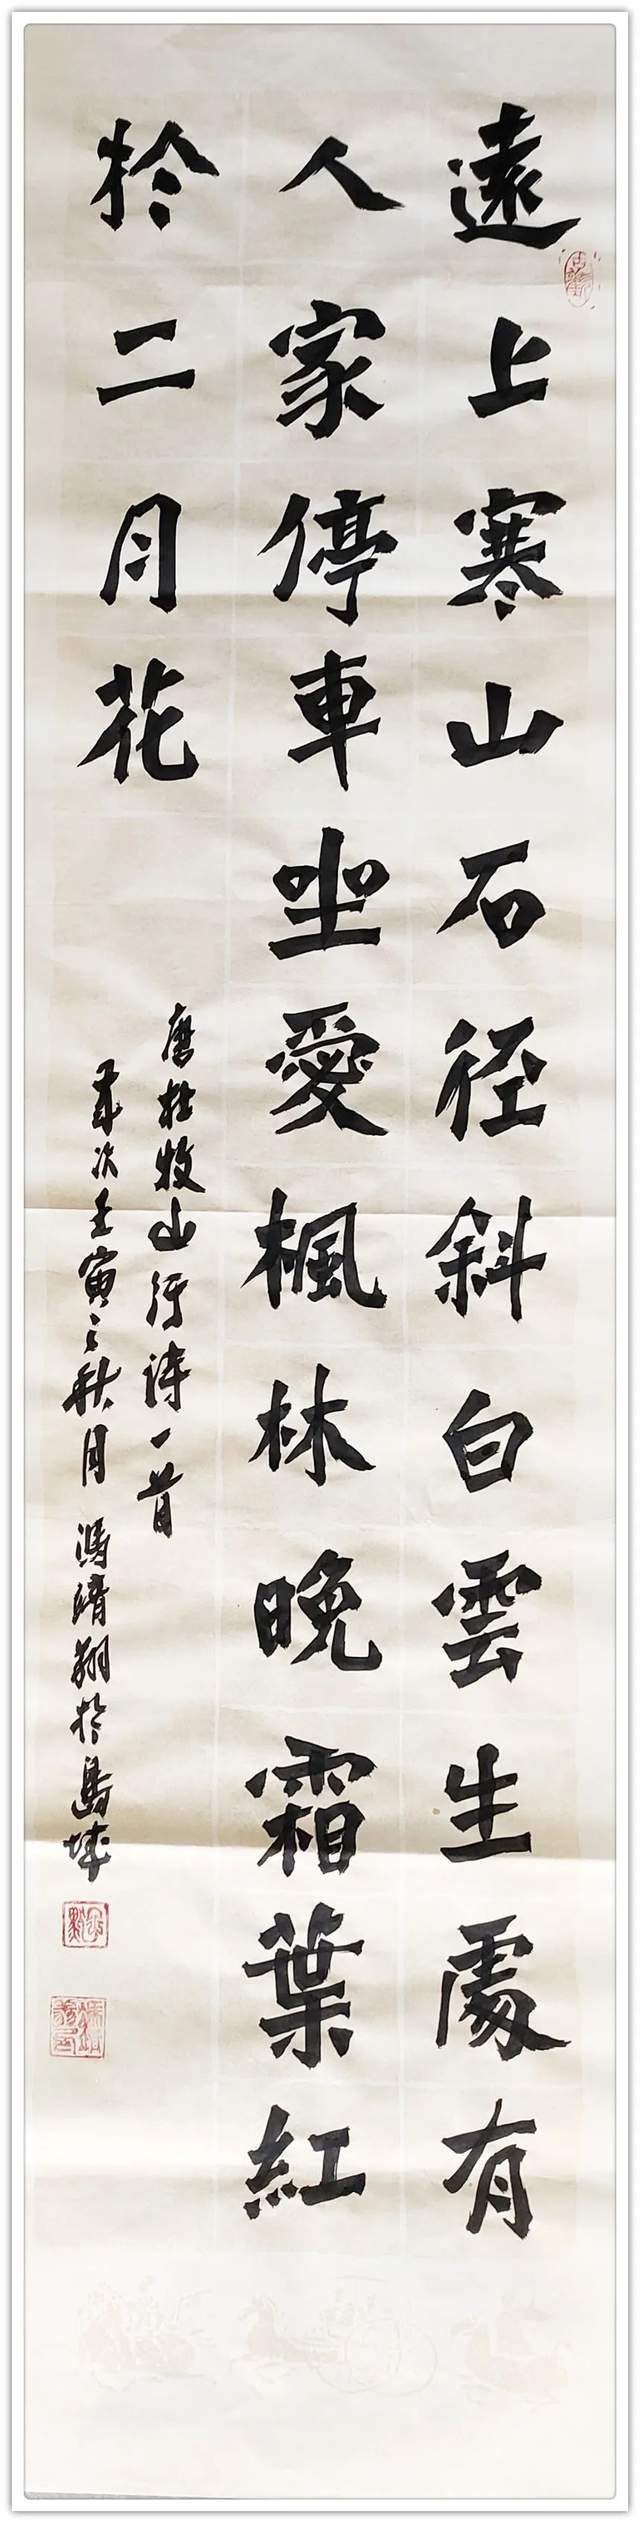 遠上寒山石径斜白雲生處有
人家停車坐愛楓林晚霜葉紅
於二月花
唐杜牧山行詩一首
歲次壬寅之秋月馮靖翔於禹城